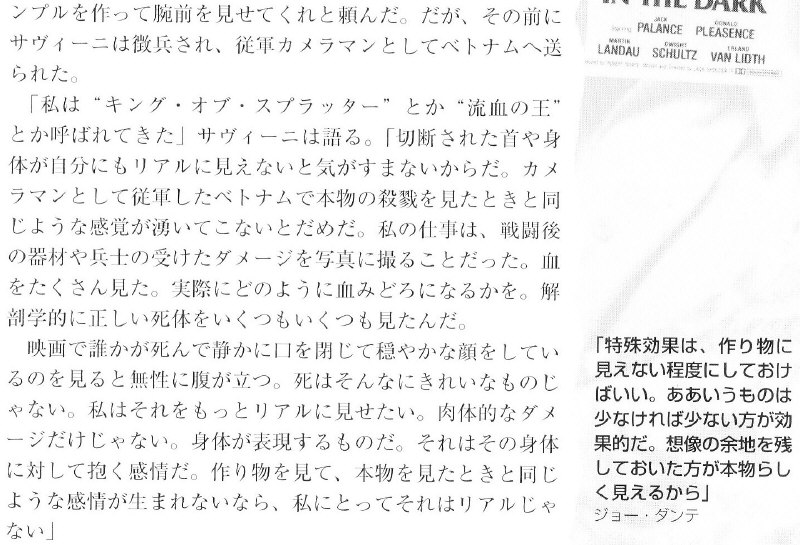 ンプルを作って腕前を見せてくれと頼んだ。だが、その前に
サヴィーニは徴兵され、従軍カメラマンとしてベトナムへ送
られた。
「私は“キング・オブ・スプラッター”とか“流血の王”
とか呼ばれてきた」サヴィーニは語る。「切断された首や身
体が自分にもリアルに見えないと気がすまないからだ。カメ
ラマンとして従軍したベトナムで本物の殺戮を見たときと同
じような感覚が湧いてこないとだめだ。私の仕事は、戦闘後
の器材や兵士の受けたダメージを写真に撮ることだった。血
をたくさん見た。実際にどのように血みどろになるかを。解
剖学的に正しい死体をいくつもいくつも見たんだ。
映画で誰かが死んで静かに口を閉じて穏やかな顔をしてい
るのを見ると無性に腹が立つ。死はそんなにきれいなものじ
ゃない。私はそれをもっとリアルに見せたい。肉体的なダメ
ージだけじゃない。身体が表現するものだ。それはその身体
に対して抱く感情だ。作り物を見て、本物を見たときと同じ
ような感情が生まれないなら、私にとってそれはリアルじゃ
ない」
IN THE DARK
JACK PALANCE DONALD PLEASENCE
MARTIN LANDAU DWIGHT SCHULTZ ERLAND VAN LIDTH
「特殊効果は、作り物に
見えない程度にしておけ
ばいい。ああいうものは
少なければ少ない方が効
果的だ。想像の余地を残
しておいた方が本物らし
く見えるから」
ジョー・ダンテ